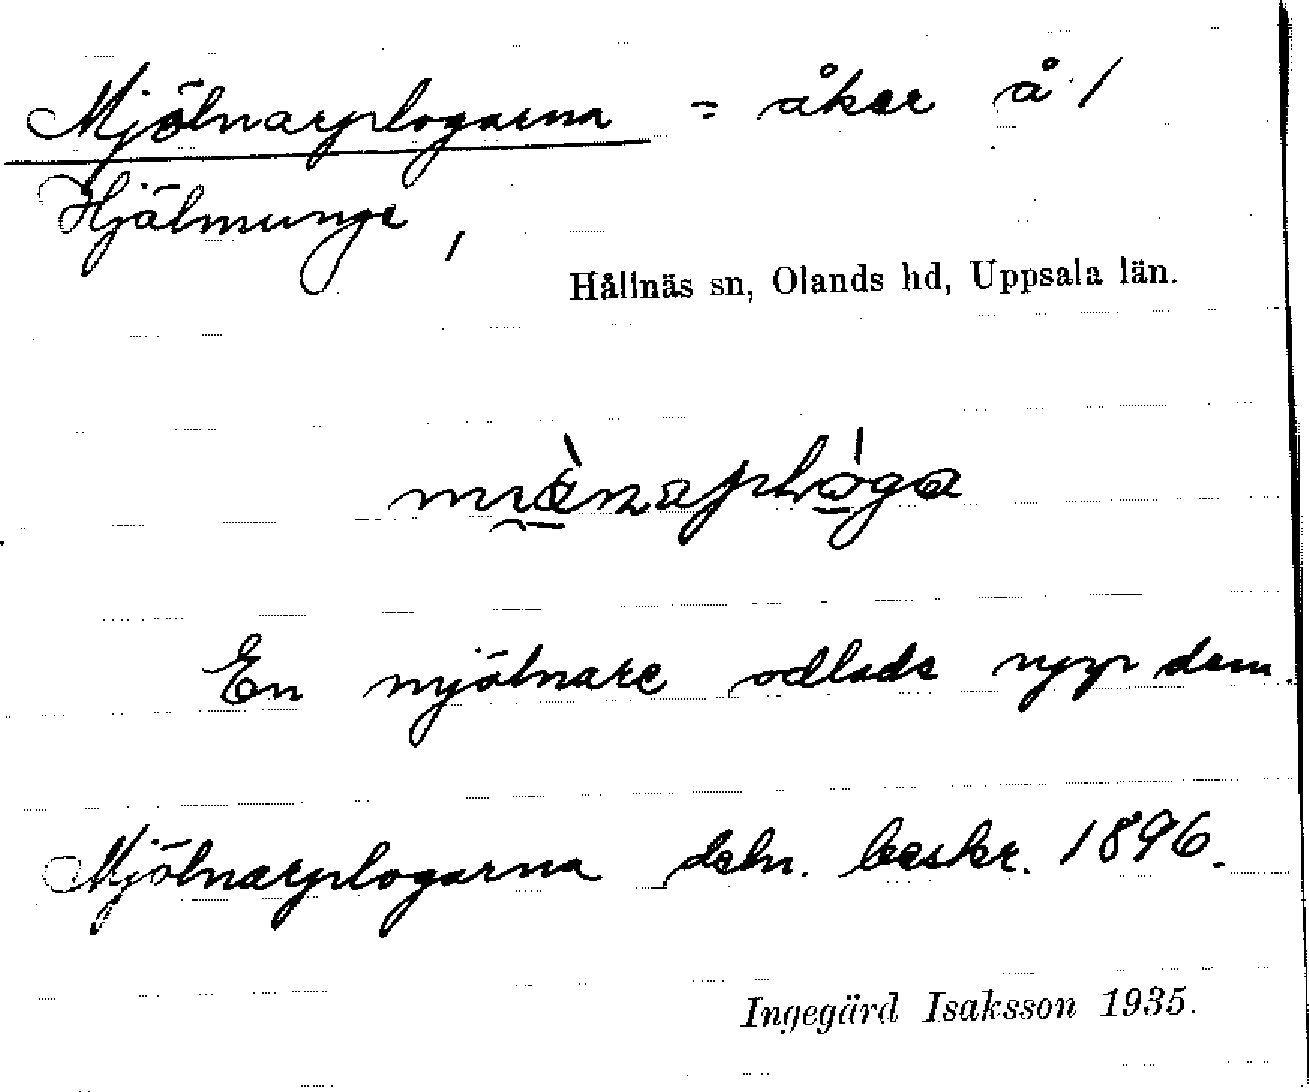 Mjölnarplogarna = åker å /
Hjälmunge,
Hållnäs sn, Olands hd, Uppsala län.
En mjölnare odlade upp dem.
Mjölnarplogarna deln. beskr. 1896.
Ingegärd Isaksson 1935.